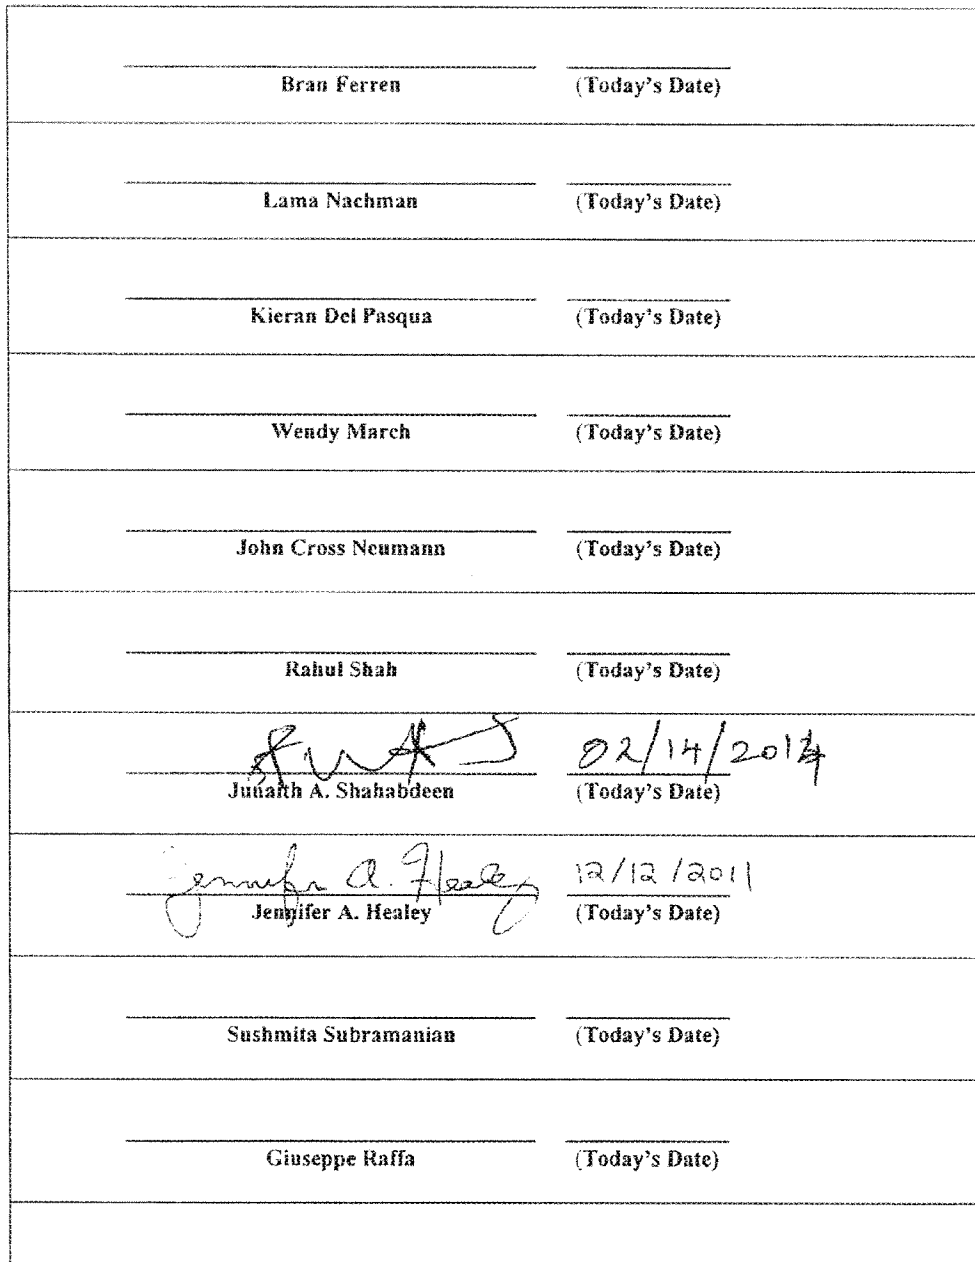 Bran Ferren (Today's Date)
Lama Nachman (Today's Date)
Kieran Del Pasqua (Today's Date)
Wendy March (Today's Date)
John Cross Neumann (Today's Date)
Rahul Shah (Today's Date)
02/14/2012
Junaith A. Shahabdeen (Today's Date)
Jennifer A. Healey 12/12/2011
Jennifer A. Healey (Today's Date)
Sushmita Subramanian (Today's Date)
Giuseppe Raffa (Today's Date)